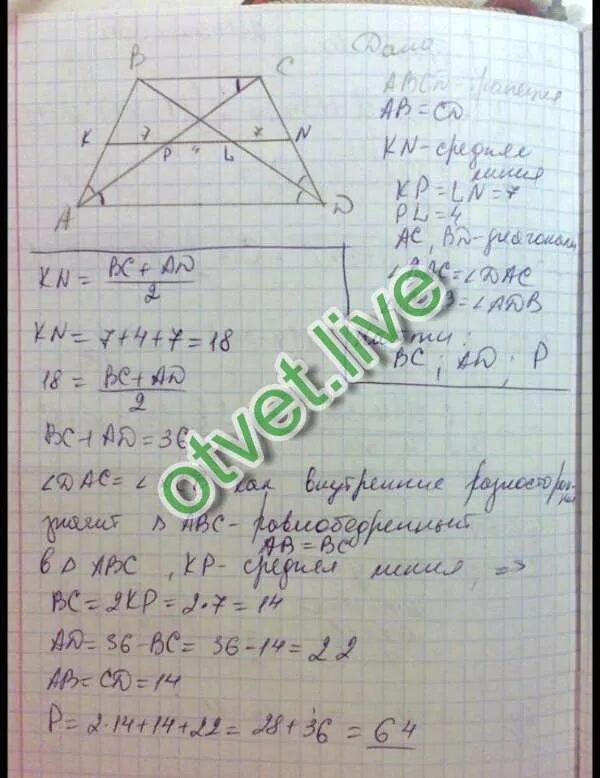 Дано
ABCD-трапеция
AB=CD
KN-средняя
линия
KP=LN=7
PL=4
AC, BD-диагонали
=∠DAC
=∠ADB
BC; AD; P
B C
K 7 7 N
P 4 L
A D
KN= BC+AD
2
KN=7+4+7=18
18= BC+AD
2
BC+AD=36
∠DAC=∠ как внутренние разносторон-
значит Δ ABC-равнобедренный
AB=BC
в Δ ABC, KP-средняя линия, =>
BC=2KP=2·7=14
AD=36-BC=36-14=22
AB=CD=14
P=2·14+14+22=28+36=64
otvet.live